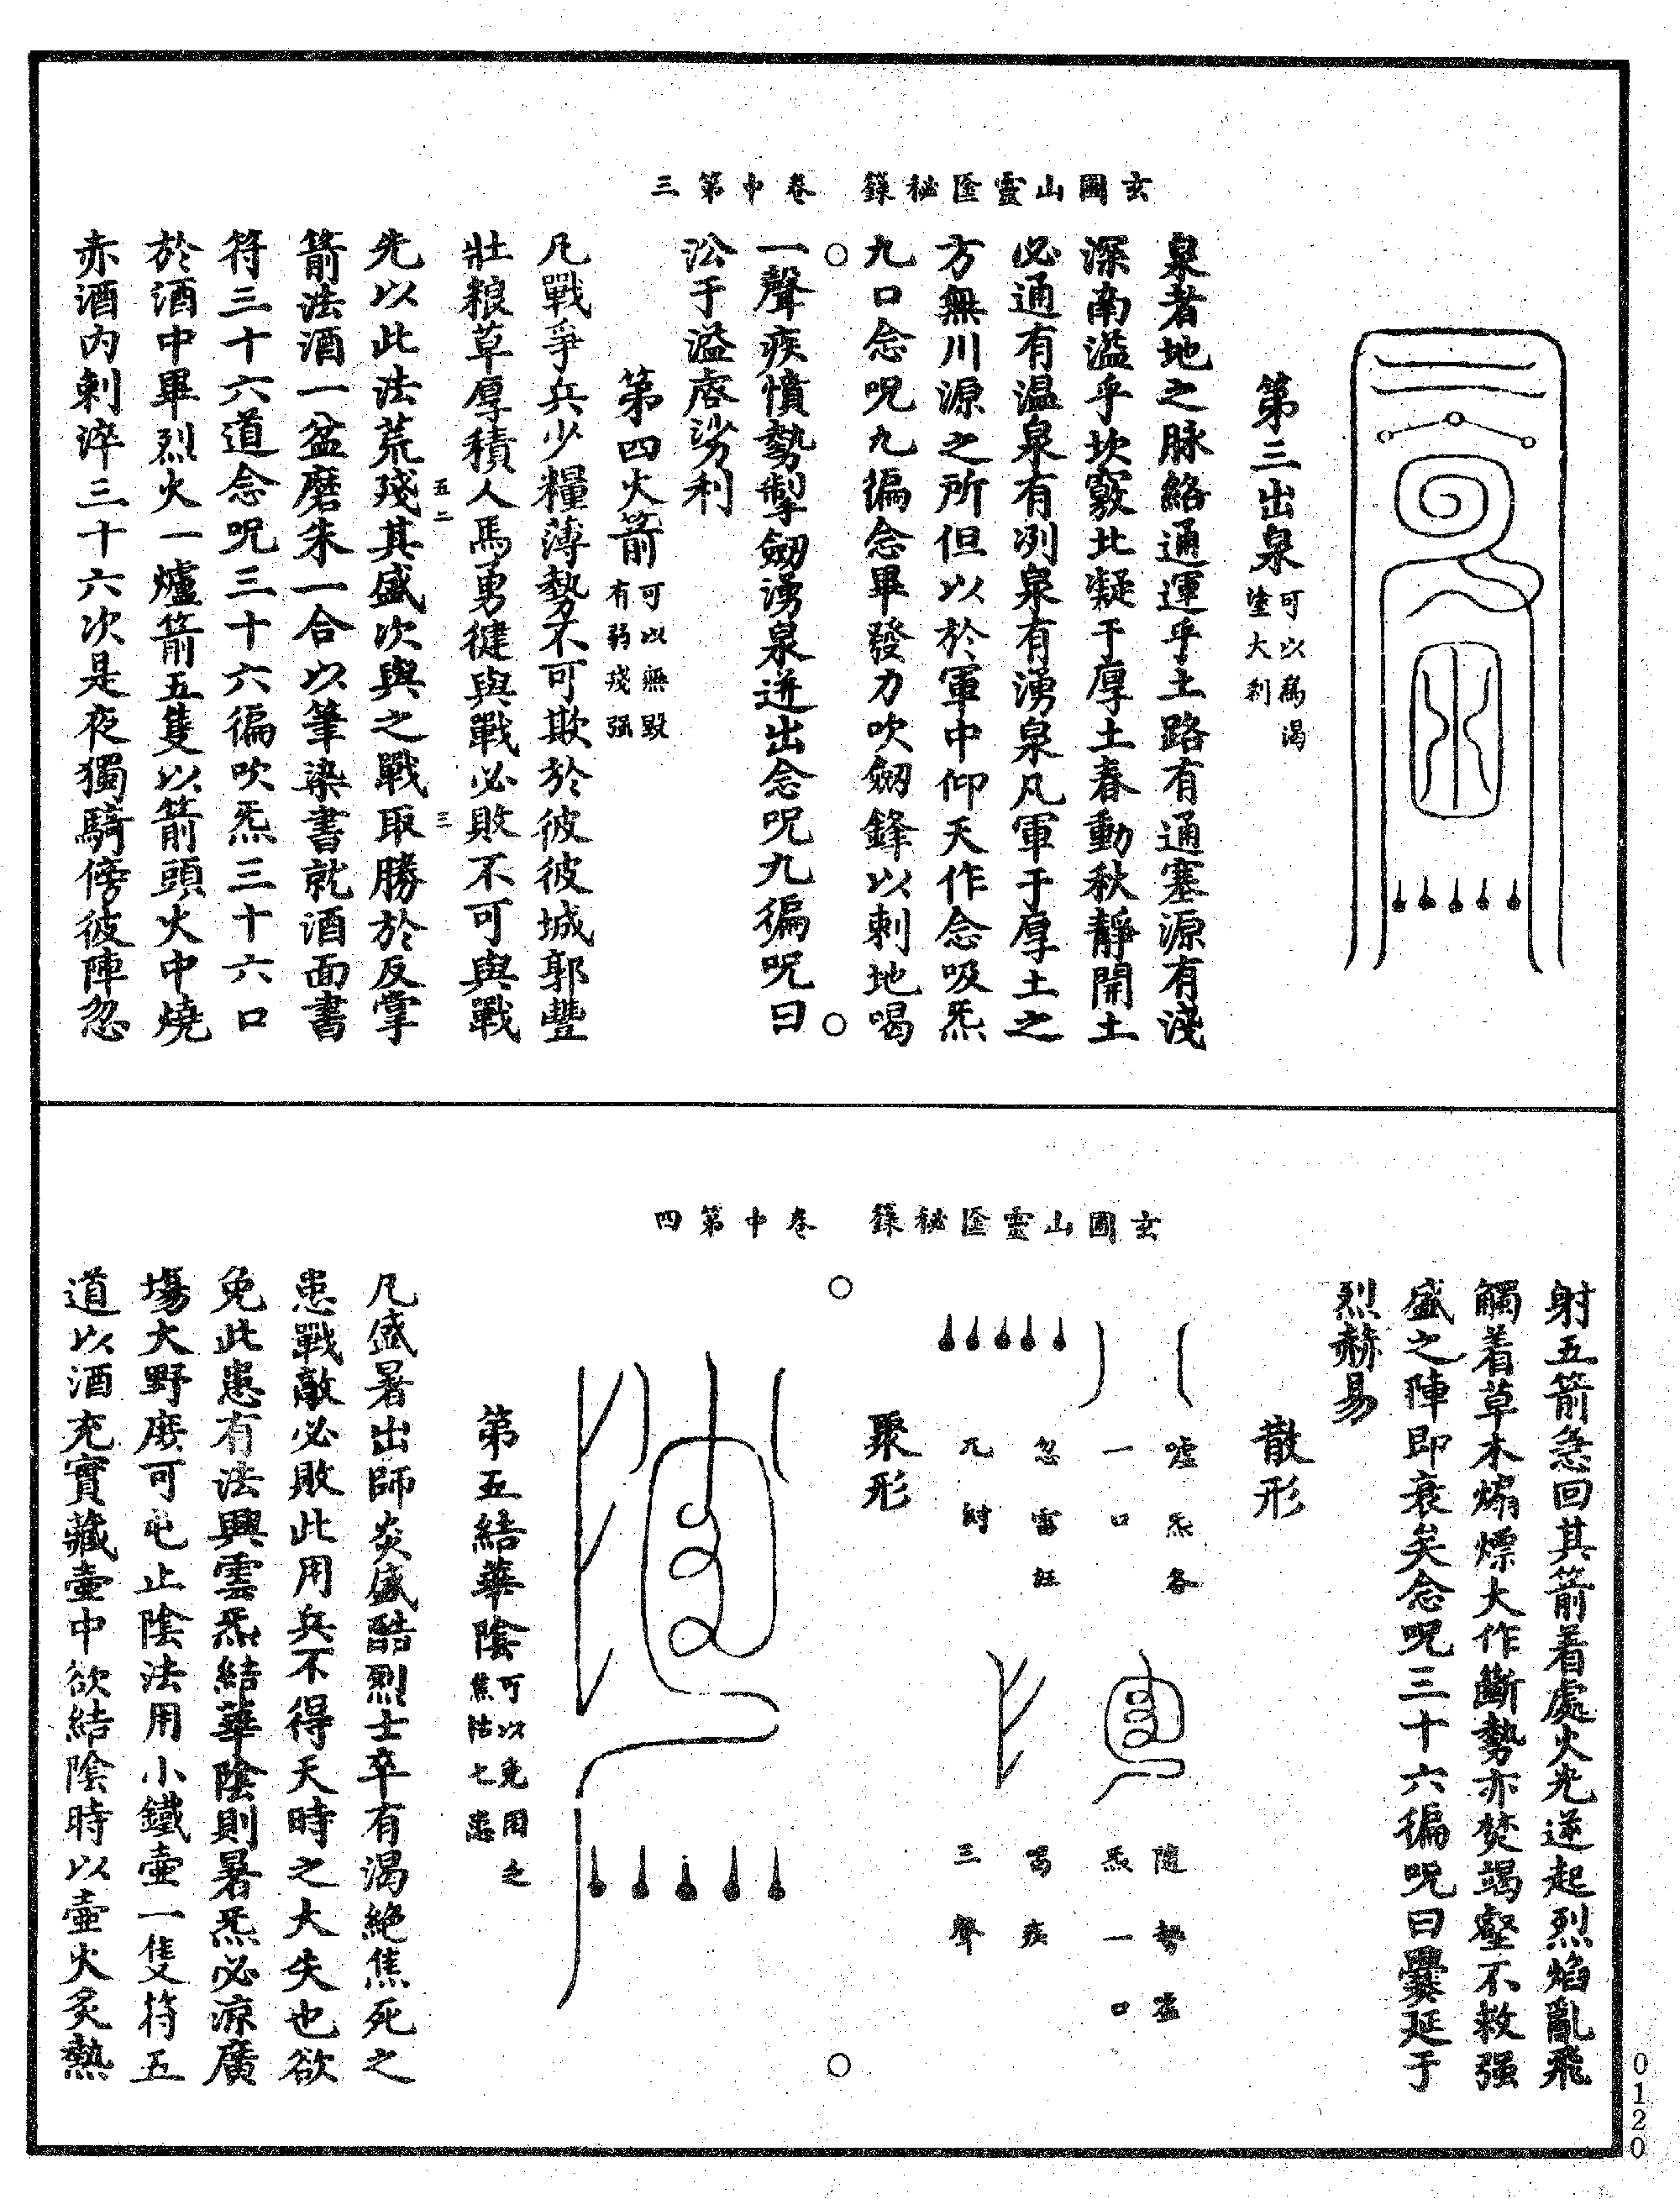 玄圃山靈匧秘籙　卷中第三
第三出泉
可以爲渴
塗大利
泉者地之脉絡通運乎土路有通塞源有淺
深南溢乎坎竅北凝于厚土土春動秋靜開土
必通有温泉有冽泉有湧泉凡軍于厚土之
方無川源之所但以於軍中仰天作念吸炁
九口念呪九徧念畢發力吹劔鋒以刺地喝
一聲疾憤勢掣劔湧泉迸出念呪九徧呪曰
㳂于溢㾗𡛔労利
第四火箭
可以無毀
有弱殘强
凡戰爭兵少糧薄勢不可欺於彼彼城郭豐
壯粮草厚積人馬勇徤與戰必敗不可與戰
先以此法荒殘其盛次與之戰取勝於反掌
五二
三
箭法酒一盆磨朱一合以筆染書就酒面書
符三十六道念呪三十六徧吹炁三十六口
於酒中畢烈火一爐箭五隻以箭頭火中燒
赤酒内刺淬三十六次是夜獨騎傍彼陣忽
玄圃山靈匧秘籙　卷中第四
射五箭急回其箭着處火光逆起烈焰亂飛
觸着草木煽熛大作斷勢亦焚竭壑不救强
盛之陣即衰矣念呪三十六徧呪曰爨延于
烈赫易
散形
嘘炁各
一口
忽雷
隨勢
炁一口
喝疾
三聲
聚形
第五結華陰
可以免用之
焦枯七患
凡盛暑出師炎盛酷烈士卒有渴絶焦死之
患戰敵必敗此用兵不得天時之大失也欲
免此患有法興雲炁結華陰則暑炁必凉廣
塲大野庶可屯止陰法用小鐵壷一隻符五
道以酒充實藏壷中欲結陰時以壷火炙熱
0120